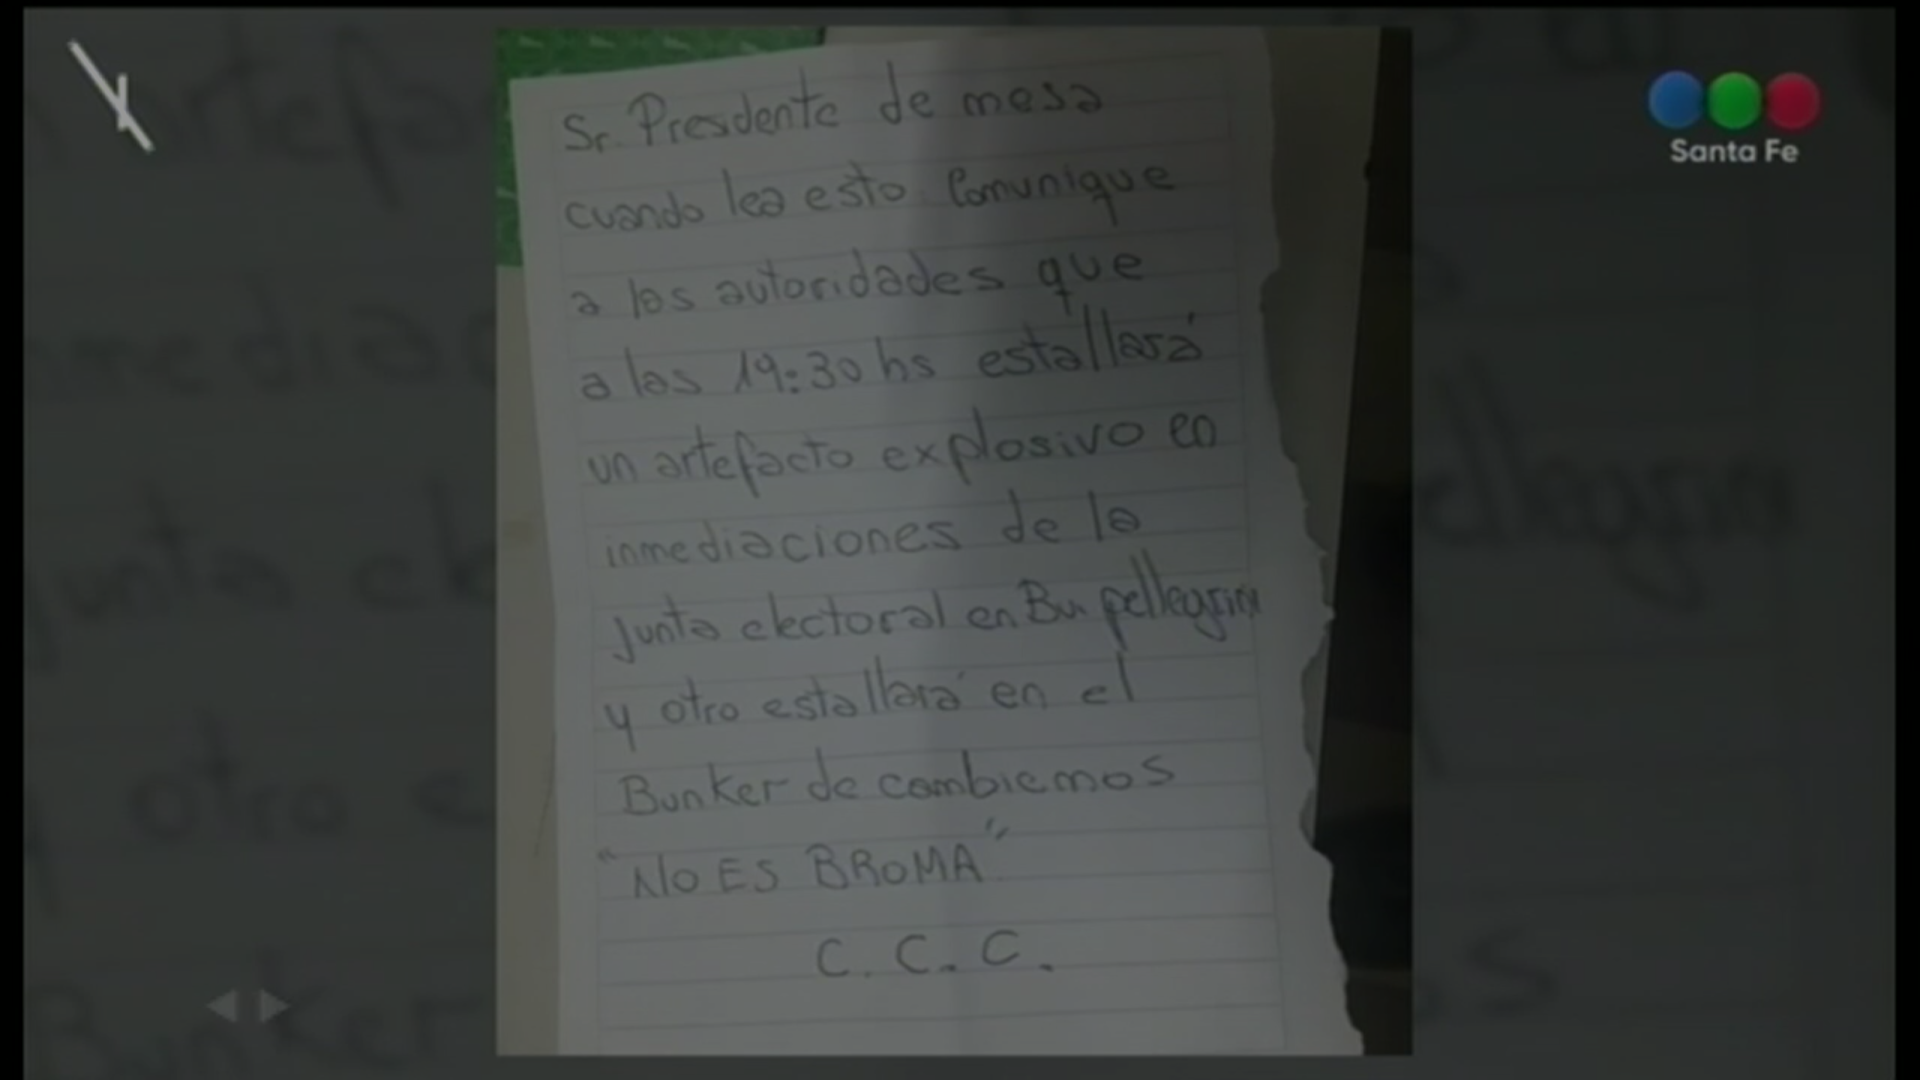 Santa Fe
Sr. Presdente de mesa
cuando lea esto Comunique
a las autoridades que
a las 19:30 hs estallará
un artefacto explosivo en
inmediaciones de la
junta electoral en Bu pellegrini
y otro estallará en el
Bunker de cambiemos
"NO ES BROMA"
C. C. C.